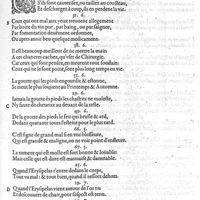 S'ils sont cauterisez, ou taillez au cousteau,
Et de s charger à coup, ils en perdent la vie.
31. 6.
B Ceux qui ont mal aux yeux trouvent allegement
Par boire du vin pur, par baing, ou par saignee,
Par fomentation deuement ordonnee,
Ou apres avoir beu quelque medicament.
38. 6.
Il est beaucoup meilleur de ne mettre la main
A ces chancres cachez, qu'user de Chirurgie.
Car ceux qui en sont pensez rencontrent leur
Ceux qui ne le sont point, sont plus long temps en vie.
55. 6.
La goutte qui les pieds engourdis & estonne,
Se meut le plus souvent au Printemps & Automne.
29. 6.
Jamais la goutte és pieds les chastrez ne moleste,
C Ny faute de cheveux au dessus de la teste.
49. 6.
De la goutte des pieds le feu qui brusle & ard,
Dedans quarante jours s'esteint pour le plus tard.
66. 5.
C'est signe de grand mal si en une blessure,
Qui est grande & maligne, on ne voit point d'enfleure.
67. 5.
La tumeur qui est molle est fort bonne & loüable:
Mais celle qui est dure est mauvaise & damnable.
25. 6.
Quand l'Erysipelas r'entre dedans le corps,
Tout va mal: & tres bien, quand il saillit dehors.
19. 7.
D Quand l'Erysipelas vient autour de l'os nu
Et descouvert de chair, pour suspect est tenu.